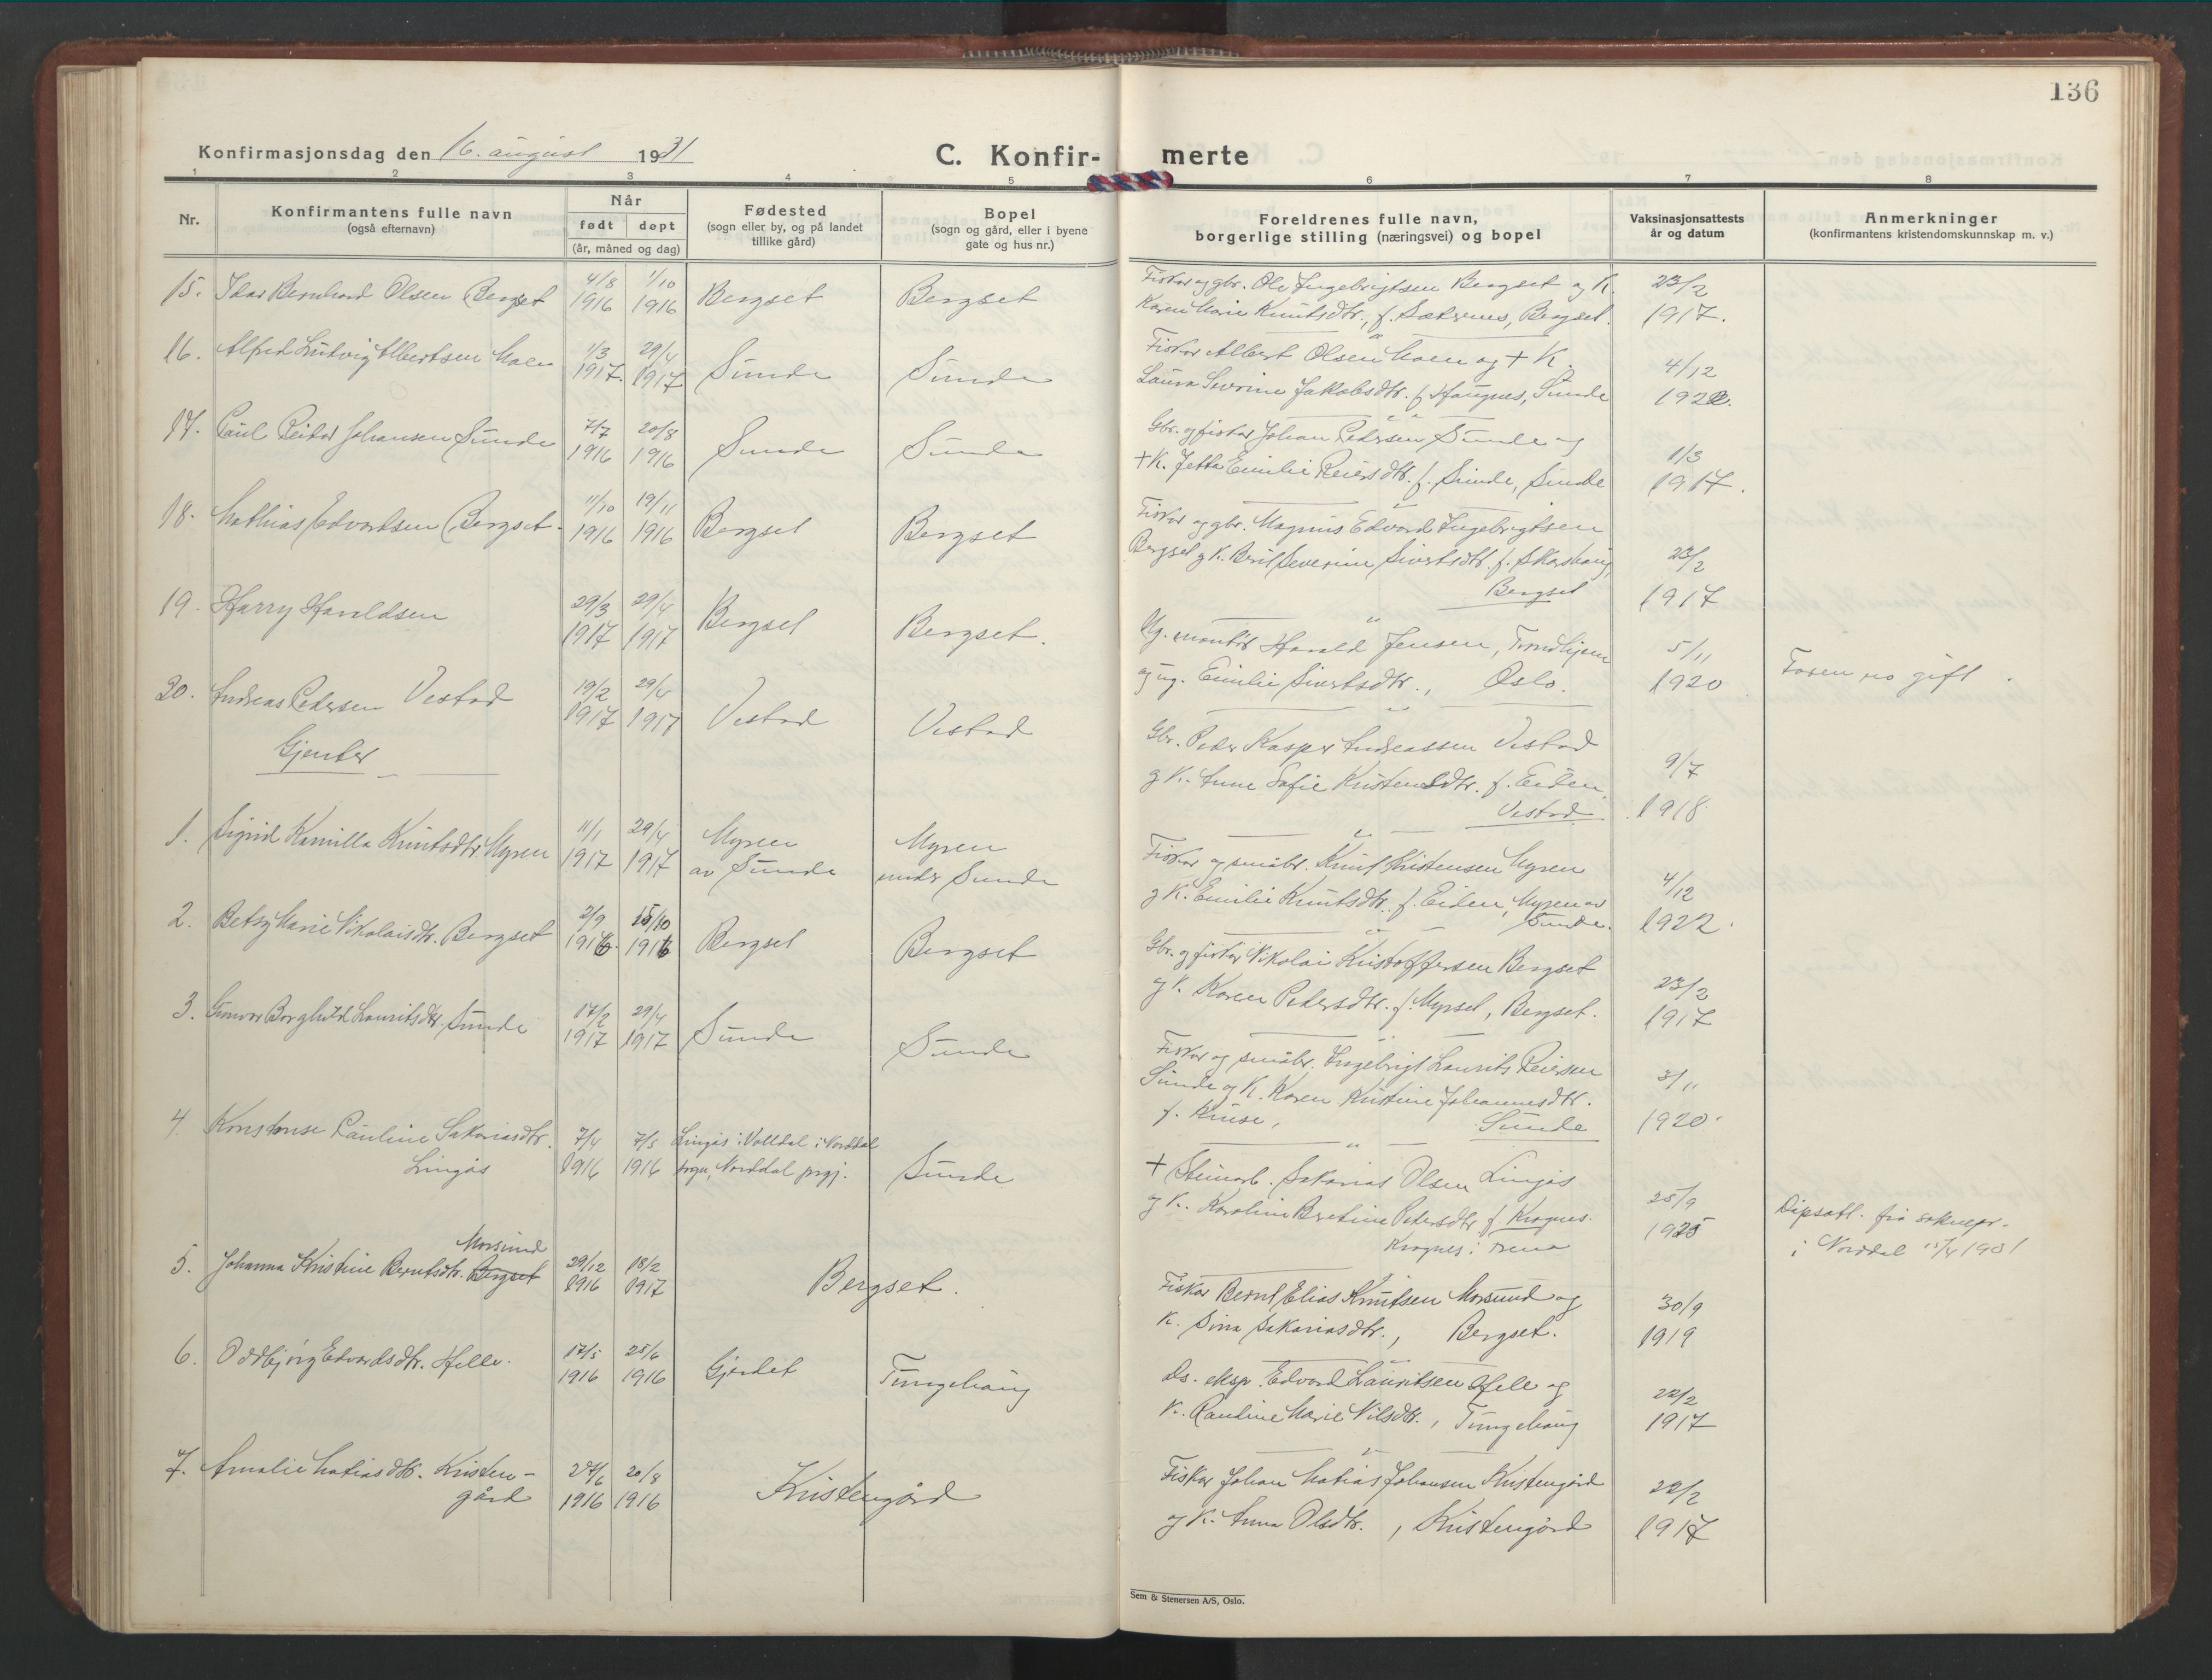 136
Konfirmasjonsdag den 16. august 1931
C. Konfir- merte
1 2 3 4 5 6 7 8
Nr.
Konfirmantens fulle navn
(også efternavn)
Når
født døpt
(år, måned og dag)
Fødested
(sogn eller by, og på landet
tillike gård)
Bopel
(sogn og gård, eller i byene
gate og hus nr.)
Foreldrenes fulle navn,
borgerlige stilling (næringsvei) og bopel
Vaksinasjonsattests
år og datum
Anmerkninger
(konfirmantens kristendomskunnskap m. v.)
15. Bernhard Olsen Bergset 4/8 1916 1/10 1916 Bergset Bergset
Fisker og gbr. Ole Ingebrigtsen Bergset og K.
Karen Marie Knutsdtr., f. Sætrenes, Bergset.
23/2 1917.
16. Alfred Ludvig Albertsen Moen 1/3 1917. 29/4 1917 Sunde Sunde
Fisker Albert Olsen Moen og + K.
Laura Severine Jakobsdtr. f. Haugnes, Sunde
4/12 1922.
17. Paul Peitar Johansen Sunde 7/7 1916 20/8 1916 Sunde Sunde
Gbr. og fisker Johan Pedersen Sunde og
+ K. Jetta Emilie Reiersdtr. f. Sunde, Sunde
1/3 1917.
18. Mathias Edvardsen Bergset. 11/10 1916 19/11 1916 Bergset Bergset
Fisker og gbr. Magnus Edvard Ingebrigtsen
Bergset og K. Berit Severine Sivertsdtr. f. Skarshaug,
Bergset
23/2 1917
19. Harry Haraldsen 29/3 1917 29/4 1917 Bergset Bergset.
Ug. montør Harald Jensen, Trondhjem
og ug. Emilie Sivertsdtr., Oslo.
5/11 1920
Faren no gift.
20. Andreas Pedersen Vestad 19/2 1917 29/4 1917 Vestad Vestad
Gbr. Peder Kasper Andreassen Vestad
og K. Anne Sofie Kristensdtr. f. Eiden,
Vestad.
9/7 1918.
Gjenter
1. Sigrid Kamilla Knutsdtr. Myren 11/1 1917 29/4 1917 Myren av Sunde Myren under Sunde
Fisker og småbr. Knut Kristensen Myren
og K. Emilie Knutsdtr. f. Eiden, Myren av
Sunde.
4/12 1922.
2. Betsy Marie Nikolaisdtr. Bergset 2/9 1916. 15/10 1916 Bergset Bergset
Gbr. og fisker Nikolai Kristoffersen Bergset
og K. Karen Pedersdtr. f. Myrset, Bergset.
23/2 1917
3. Gunvor Borghild Lauritsdtr. Sunde 17/2 1917 29/4 1917 Sunde Sunde
Fisker og småbr. Ingebrigt Laurits Reiersen
Sunde og K. Karen Kristine Johannesdtr.
f. Kruse, Sunde
3/11 1920.
4. Konstanse Pauline Sakariasdtr. Lingås 7/4 1916 7/5 1916 Lingås i Valldal i Norddal sogn, Norddal prgj. Sunde
+ Steinarb. Sakarias Olsen Lingås
og K. Karoline Beretine Pedersdtr. f. Kragnes.
Kragnes i Frena
25/9 1925
Dåpsatt. frå soknepr.
i Norddal 15/4 1931
5. Johanna Kristine Berntsdtr. Bergset Morsund 29/12 1916 18/2 1917 Bergset.
Fisker Bernt Elias Knutsen Morsund og
K. Sina Sakariasdtr., Bergset.
30/9 1919
6. Oddbjørg Edvardsdtr. Helle. 17/5 1916 25/6 1916 Gjerdet Tungehaug
Ds. eksp. Edvard Lauritsen Helle og
K. Pauline Marie Nilsdtr., Tungehaug
22/2 1917
7. Amalie Matiasdtr. Kristen-
gård 27/6 1916 20/8 1916 Kristengård
Fisker Johan Matias Johansen Kristengård
og K. Anna Olsdtr., Kristengård
22/2 1917
Sem & Stenersen A/S, Oslo.